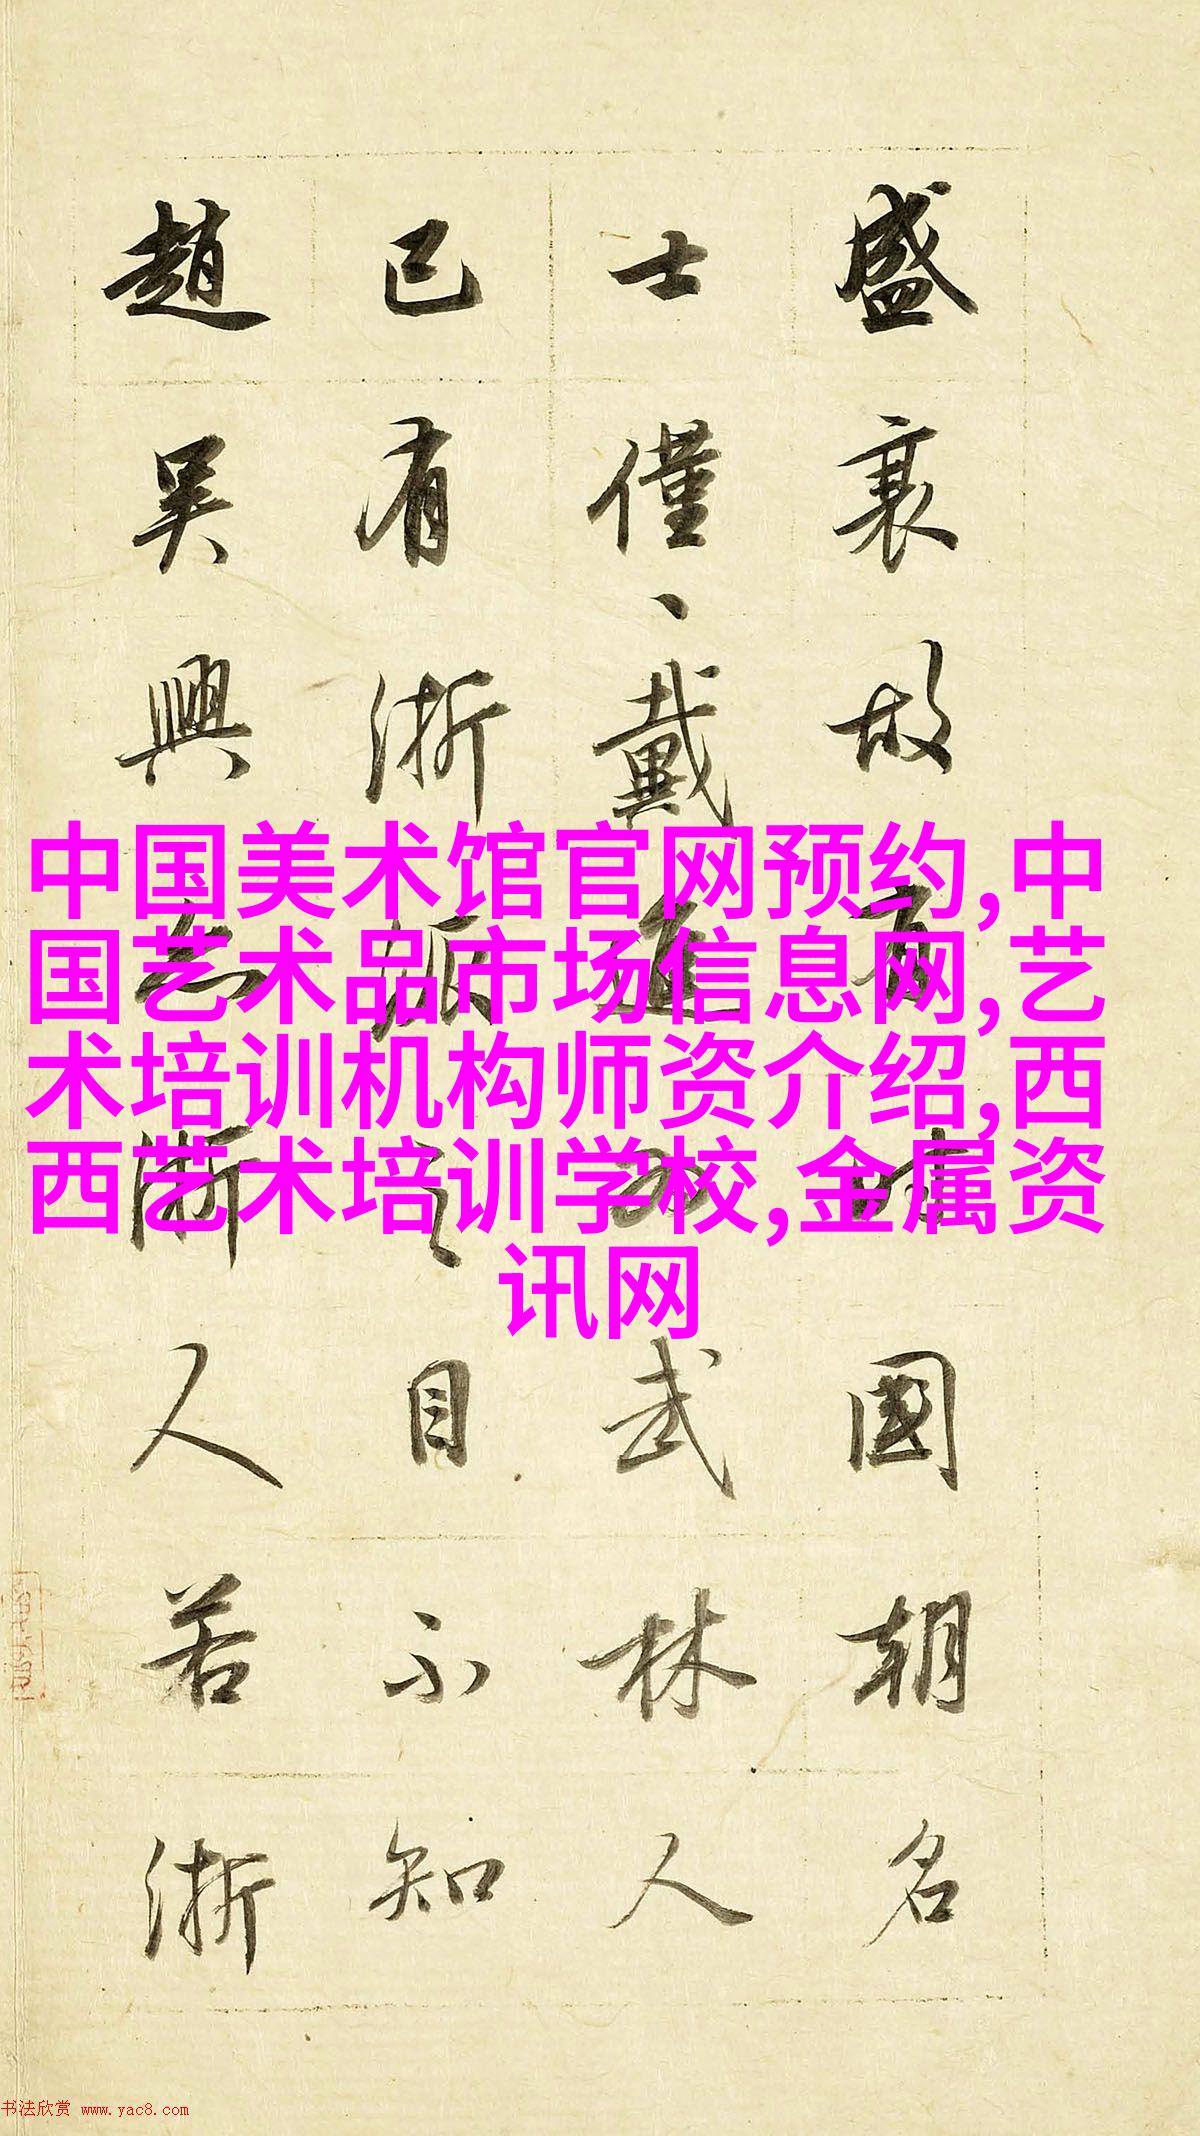 盛衰故有時國朝名
士僅丶戴進為武林人
已有浙派之目不知
趙吴興亦浙人若浙
中国美术馆官网预约,中
国艺术品市场信息网,艺
术培训机构师资介绍,西
西艺术培训学校,金属资
讯网
书法欣赏 www.yac8.com